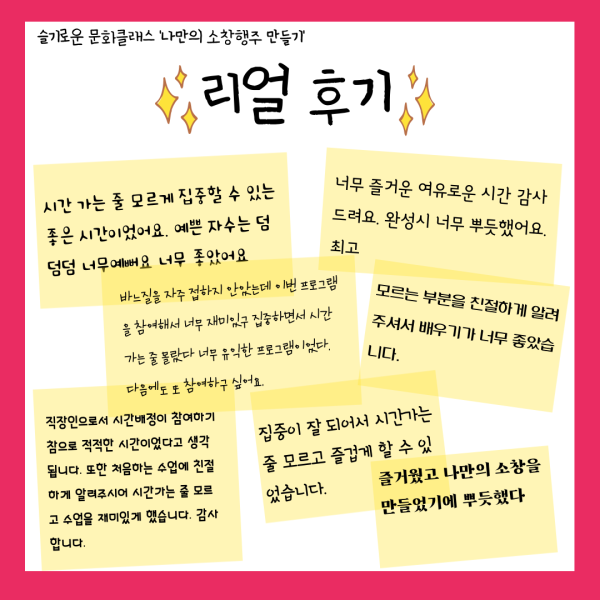 슬기로운 문화클래스 '나만의 소창행주 만들기'
리얼 후기
시간 가는 줄 모르게 집중할 수 있는
좋은 시간이었어요. 예쁜 자수는 덤
덤덤 너무예뻐요 너무 좋았어요
너무 즐거운 여유로운 시간 감사
드려요. 완성시 너무 뿌듯했어요.
최고
바느질을 자주 접하지 안았는데 이번 프로그램
을 참여해서 너무 재미있구 집중하면서 시간
가는 줄 몰랐다 너무 유익한 프로그램이었다.
다음에도 또 참여하구 싶어요.
모르는 부분을 친절하게 알려
주셔서 배우기가 너무 좋았습
니다.
직장인으로서 시간배정이 참여하기
참으로 적적한 시간이였다고 생각
됩니다. 또한 처음하는 수업에 친절
하게 알려주시어 시간가는 줄 모르
고 수업을 재미있게 했습니다. 감사
합니다.
집중이 잘 되어서 시간가는
줄 모르고 즐겁게 할 수 있
었습니다.
즐거웠고 나만의 소창을
만들었기에 뿌듯했다